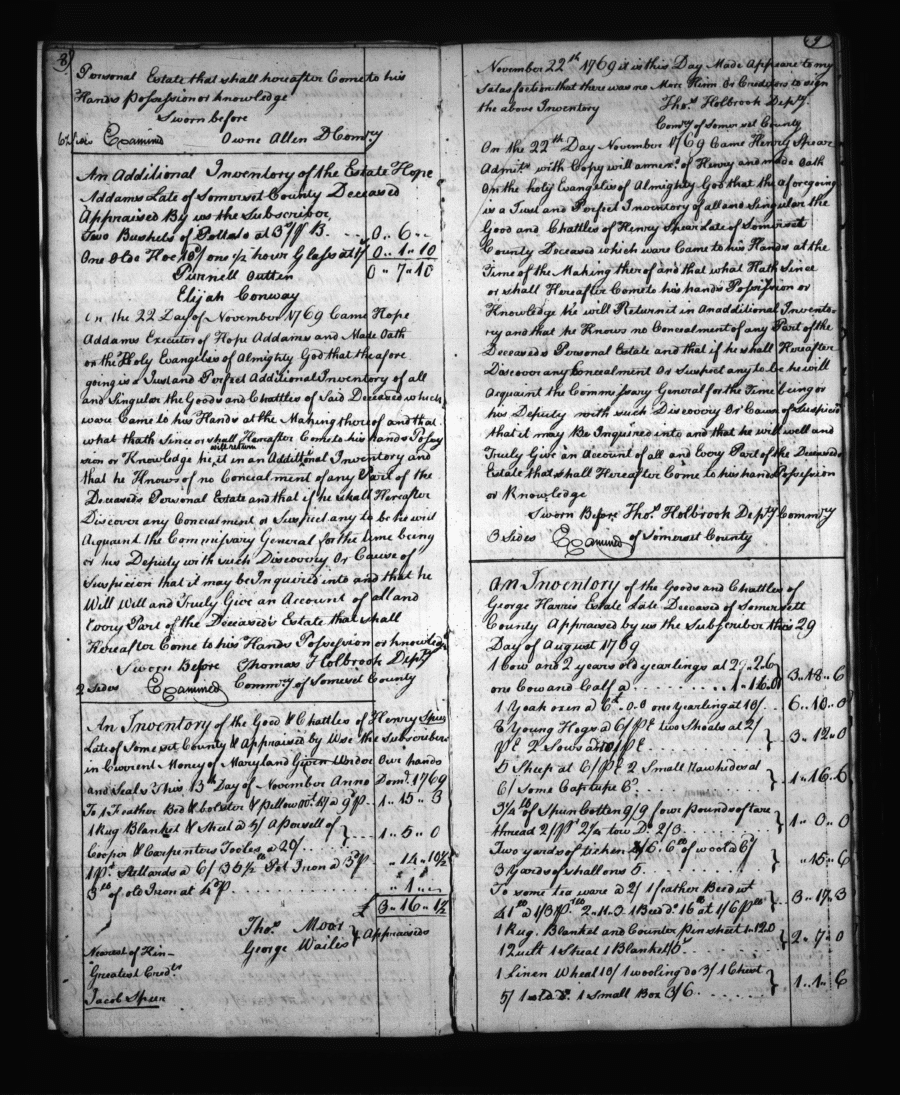 8
Personal Estate that shall hereafter Come to his
Hands possession or knowledge
Sworn before
Sides Examined Owne Allen D Comry
An Additional Inventory of the Estate Hope
Addams Late of Somerset County Deceased
Appraised By us the Subscribor,
Two Bushels of Pottato at 3/ p B. 0 .. 6 ..
One Olde Hoe 10d/ one 1/2 hour Glass at 1/ 0 .. 1 .. 10
Purnell Outten 0 .. 7 .. 10
Elijah Conway
On the 22 Day of November 1769 Came Hope
Addams Executor of Hope Addams and Made Oath
on the Holy Evangelies of Almighty God that the afore
going is a Just and Perfect Additional Inventory of all
and Singular the Goods and Chattles of Said Deceased which
were Came to his Hands at the Making thereof and that
what thath Since or shall Hereafter Come to his hands Posses
sion or Knowledge he will return it in an Additional Inventory and
that he Knows of no Concealment of any Part of the
Deceaseds Personal Estate and that if he shall Hereafter
Discover any Concealment or Suspect any to be he will
Acquaint the Commissary General for the time being
or his Deputy with such Discovery Or Cause of
Suspicion that it may be Inquired into and that he
Will Will and Truly Give an Account of all and
Every Part of the Deceaseds Estate that shall
Hereafter Come to his Hands Possession or knowledge
Sworn Before Thomas Holbrook Depty
2 Sides Examined Commry of Somerset County
An Inventory of the Good & Chattles of Henry Spear
Late of Somerset County & Appraised by Us the Subscribers
in Current Money of Maryland Given Under Our hands
and Seals This 13th Day of November Anno Dom. 1769
To 1 Feather Bed & bolster & Pellow 1 .. 15 .. 3
1 Rug Blanket & Sheet a 5/ A parcell of
Cooper & Carpenters Tooles a 20/ } 1 .. 5 .. 0
1 Pr Stellards a 6/ Pot Iron a 3d p .. 14 .. 10 1/2
3 lb of old Iron at 4d p .. 1 ..
£ 3 .. 16 .. 1 1/2
Thos Moor
George Wailes } Appraisers
Nearest of Kin
Greatest Credrs
Jacob Spear
9
November 22th 1769 it is this Day Made Appeare to my
Satasfaction that there was no More Kinn Or Creditors to sign
the above Inventory Thos Holbrook Depty
Comry of Somerset County
On the 22th Day November 1769 Came Henry Spear
Admitr with Copy will annexd of Henry and made Oath
On the holy Evangelies of Almighty God that the aforegoing
is a Just and Perfect Inventory of all and Singular the
Good and Chattles of Henry Spear Late of Somerset
County Deceased which were Came to his Hands at the
Time of the Making therof and that what Hath Since
or shall Hereafter Come to his hands Possission or
Knowledge he will Return it in an additional Invento-
ry and that he Knows no Concealment of any Part of the
Deceaseds Personal Estate and that if he shall Hereafter
Discover any Concealment Or Suspect any to be he will
Acquaint the Commissary General for the Time being or
his Deputy with such Discovery Or Cause of Suspicion
that it may Be Inquired into and that he will well and
Truly Give an Account of all and Every Part of the Deceaseds
Estate that shall Hereafter Come to his hands Possession
or Knowledge
Sworn Before Thos Holbrook Depty Commry
3 Sides Examined of Somerset County
An Inventory of the Goods and Chattles of
George Harris Estate Late Deceased of Somersett
County Appraised by us the Subscriber this 29
Day of August 1769
1 Cow and 2 years old yearlings at 2..2..6
one Cow and Calf a 1..16..0 } 3..18..6
1 Yoak oxen a 6..0..0 one yearling at 10/ 6..10..0
8 Young Hogs a 6/ pc two Shoats at 2/
pc 2 Sows a 10/ pc } 3..12..0
5 Sheep at 6/ pc 2 Small Rawhides at
6/ Some Capture 6d } 1..16..6
3 1/4 lb of Spun Cotten 9/9 four pounds of tare
thread 2/ p 2 1/4 tow Do 2/3 } 1..0..0
Two yards of ticken 6 lb of wool a
3 Yards of shallons 5 } ..15..6
To some tea ware a 2/ 1 feather Beed wt
41 lb a 1/3 p lb 2..11..3 1 Beed do 16 lb at 1/6 p lb } 3..17..3
1 Rug Blanket and Counter pin sheet 1..12..0
1 Quilt 1 Sheat 1 Blanket } 2..7..0
1 Linen Wheal 10/ 1 wooling do 3/ 1 Chest
5/ 1 old do 1 Small Box 3/6 } 1..1..6